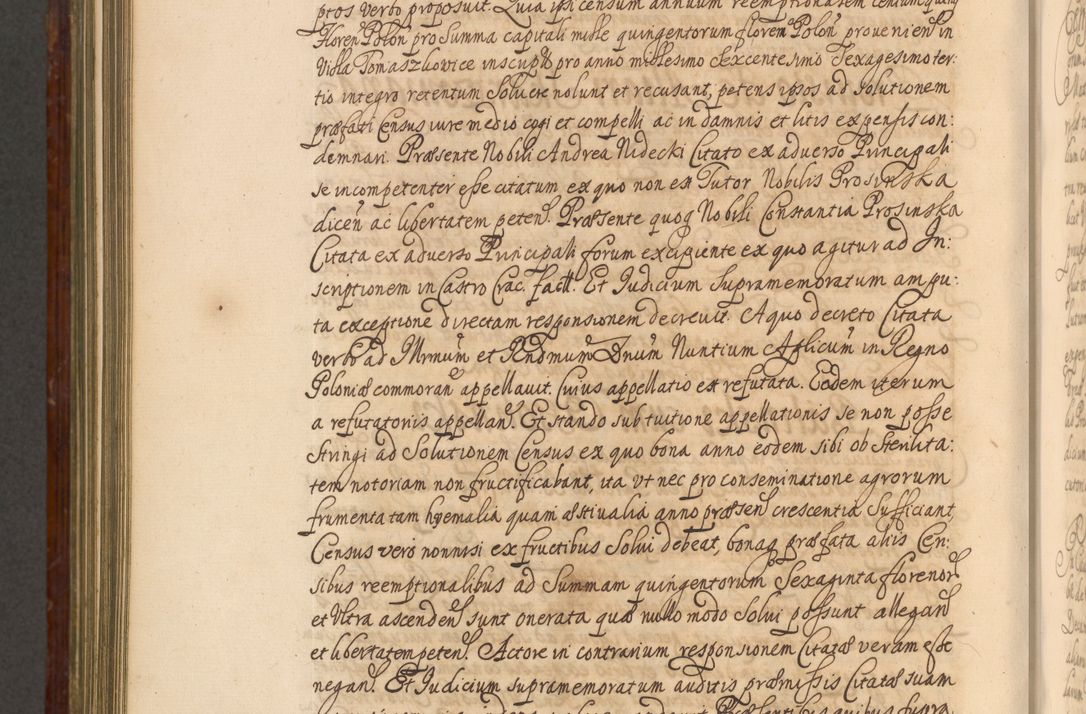 ptos verbo proposuit. Quia ipsi censum annuum reemptionalem centum quinq
Floren Polon pro Summa capitali mille quingentorum floren Polon provenien in
Villa Tomaszkowice inscript pro anno millesimo Sexcentesimo Sexagesimo ter:
tio integro retentum Solvere nolunt et recusant, petens ipsos ad Solutionem
præfati Census iure medio cogi et compelli ac in damnis et litis expensis con:
demnari. Præsente Nobili Andrea Nidecki Citato ex adverso Principali
se incompetenter esse citatum ex quo non est Tutor Nobilis Prosinska
dicen ac libertatem peten. Præsente quoq Nobili Constantia Prosinska
Citata ex adverso Principali forum excipiente ex quo agitur ad In:
scriptionem in Castro Crac. fact. Et Judicium supramemoratum ampu:
ta exceptione directam responsionem decrevit. A quo decreto Citata
verbo ad Illrmum et Rndmum Dnum Nuntium Aplicum in Regno
Poloniæ commoran appellavit. Cuius appellatio est refutata. Eadem iterum
a refutatoriis appellan. Et stando sub tuitione appellationis se non posse
stringi ad Solutionem Census ex quo bona anno eodem sibi ob sterilita:
tem notoriam non fructificabant, ita ut nec pro conseminatione agrorum
frumenta tam hyemalia quam æstivalia anno præsen crescentia sufficiant,
Census vero nonnisi ex fructibus Solvi debeat, bonaq præfata aliis Cen:
sibus reemptionalibus ad Summam quingentorum Sexaginta florenor
et Ultra ascenden sunt onerata quæ nullo modo Solvi possunt allegan
et libertatem peten. Actore in contrarium responsionem Citatæ veram esse
negan. Et Judicium supramemoratum auditis præmissis Citatæ suam